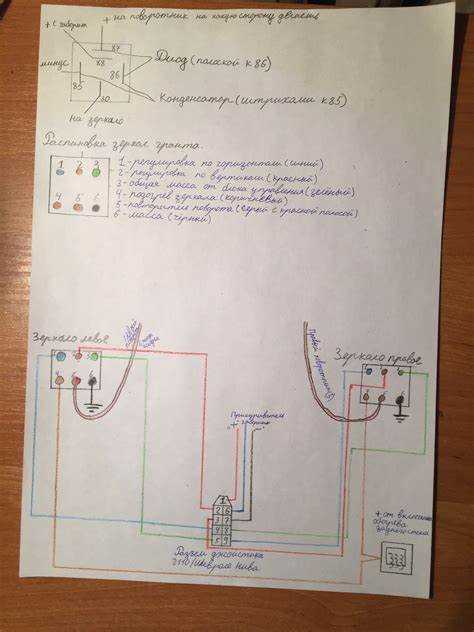 + на поворотник на какую сторону делаешь
+ с габарит
87
минус
88
86
Диод (полоской к 86)
85
30
Конденсатор (штрихами к 85)
на зеркало
Распиновка зеркал гранта.
1 2 3
4 5 6
1 - регулировка по горизонтали (синий)
2 - регулировка по вертикали (красный)
3 - общая масса от блока управления (зелёный)
4 - подогрев зеркала (коричневый)
5 - повторитель поворота (серый с красной полосой)
6 - масса (чёрный)
Зеркало левое
Правый поворотник
Зеркало правое
Прикуриватель
+ габарит -
1
2 6
3 7
4 8
5 9
Разъем джойстика
2110/Шевроле Нива
+ от включения
обогрева
заднего стекла